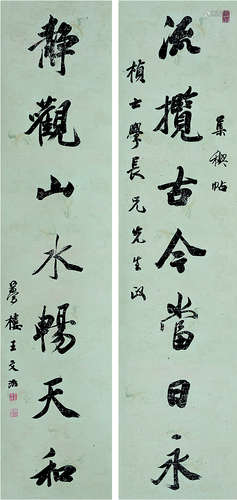 流攬古今當日永
集禊帖
楨士學長兄先生政
靜觀山水暢天和
夢樓王文治